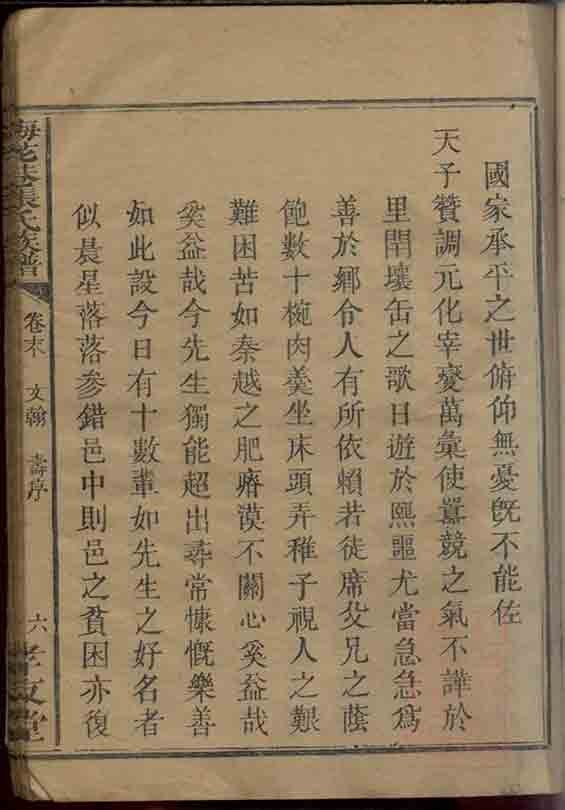 國家承平之世俯仰無憂旣不能佐
天子贊調元化宰燮萬彙使囂競之氣不譁於
里閈壤缶之歌日遊於熙皥尤當急急爲
善於鄉令人有所依賴若徒席父兄之蔭
飽數十椀肉羹坐床頭弄稚子視人之艱
難困苦如秦越之肥瘠漠不關心奚益哉
奚益哉今先生獨能超出尋常慷慨樂善
如此設今日有十數輩如先生之好名者
似晨星落落參錯邑中則邑之貧困亦復
梅花巷張氏族譜 卷末 文翰 壽序 六 孝友堂